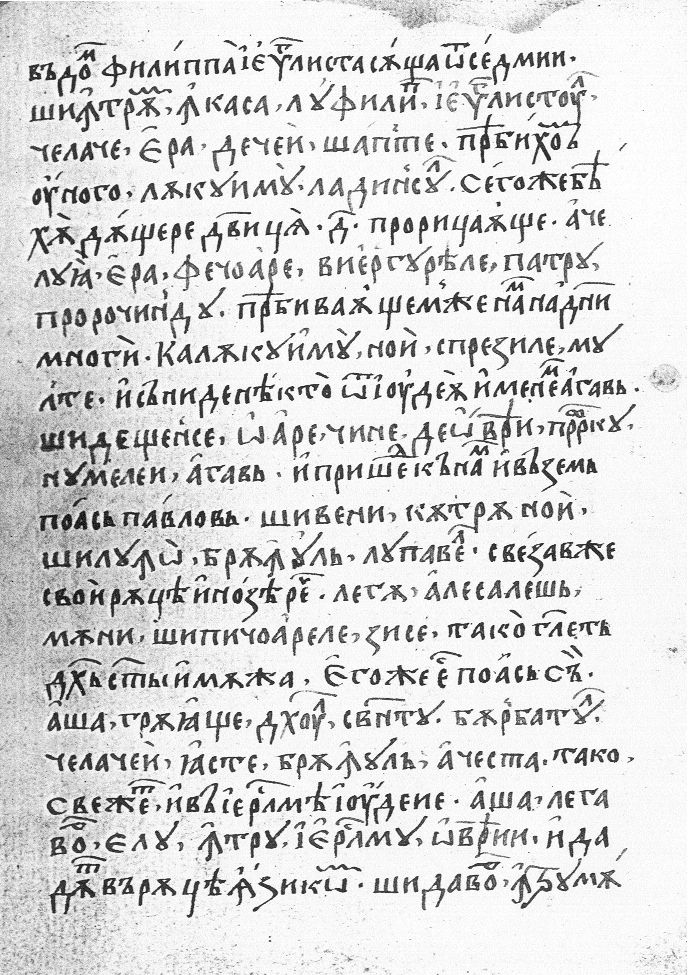 въдоⷨ филиппа іеѵⷢ҇листа сѫща ѿ седмии·
ши ꙟтрѫ, ꙟ каса, луфилиⷫ, іеѵⷢ҇листоуⷧ,
челаче, ера, дечеи, шапте, прѣбихоⷨ
оуного, лѫкуимꙋ, ладинсуⷧ. Сегожебѣ
хѫ дъщере двⷭ҇ица· д҃· прорицающе· аче
луꙗ, ера, фечоаре, виергурѣле, патру,
пророчинду. прѣбивающем же наⷨ надни
многи· калѫкуимꙋ, ной, спрезиле, му
лте, и съниденѣкто ѿ іоудеѫ именеⷨ агавь·
ши дещенсе, ѡаре, чине, деѡврⷺи, прⷪ҇рку,
нумелеи, агавь· и пришеⷣ къ наⷨ и въземь
поась павловь· ши вени, кѫтрѫ ной,
ши луѡ, брѫꙟль, лу павеⷧ· свезавже
свои рѫцѣ и нозѣ реⷱ҇· легѫ, але сале шь,
мѫни, ши пичоареле, зисе, тако глⷢ҇еть
дх҃ъ ст҃ы и мѫжа, егоже еⷭ҇ поась съ·
аша, грѫꙗще, дхоуⷧ, свⷩ҇ту. бѫрбатуⷧ,
челачеи, ꙗсте, брѫꙟль, ачеста. тако,
свежеⷮ, и въ іерⷭ҇лмѣ іоудеие· аша, лега
воⷬ, елу, ꙟтру, іерⷭ҇лму, ѡврⷺии, и да
дѫⷮ въ рѫцѣ ѫзикѡⷨ· ши давоⷬ, ꙟ ꙟ мѫ